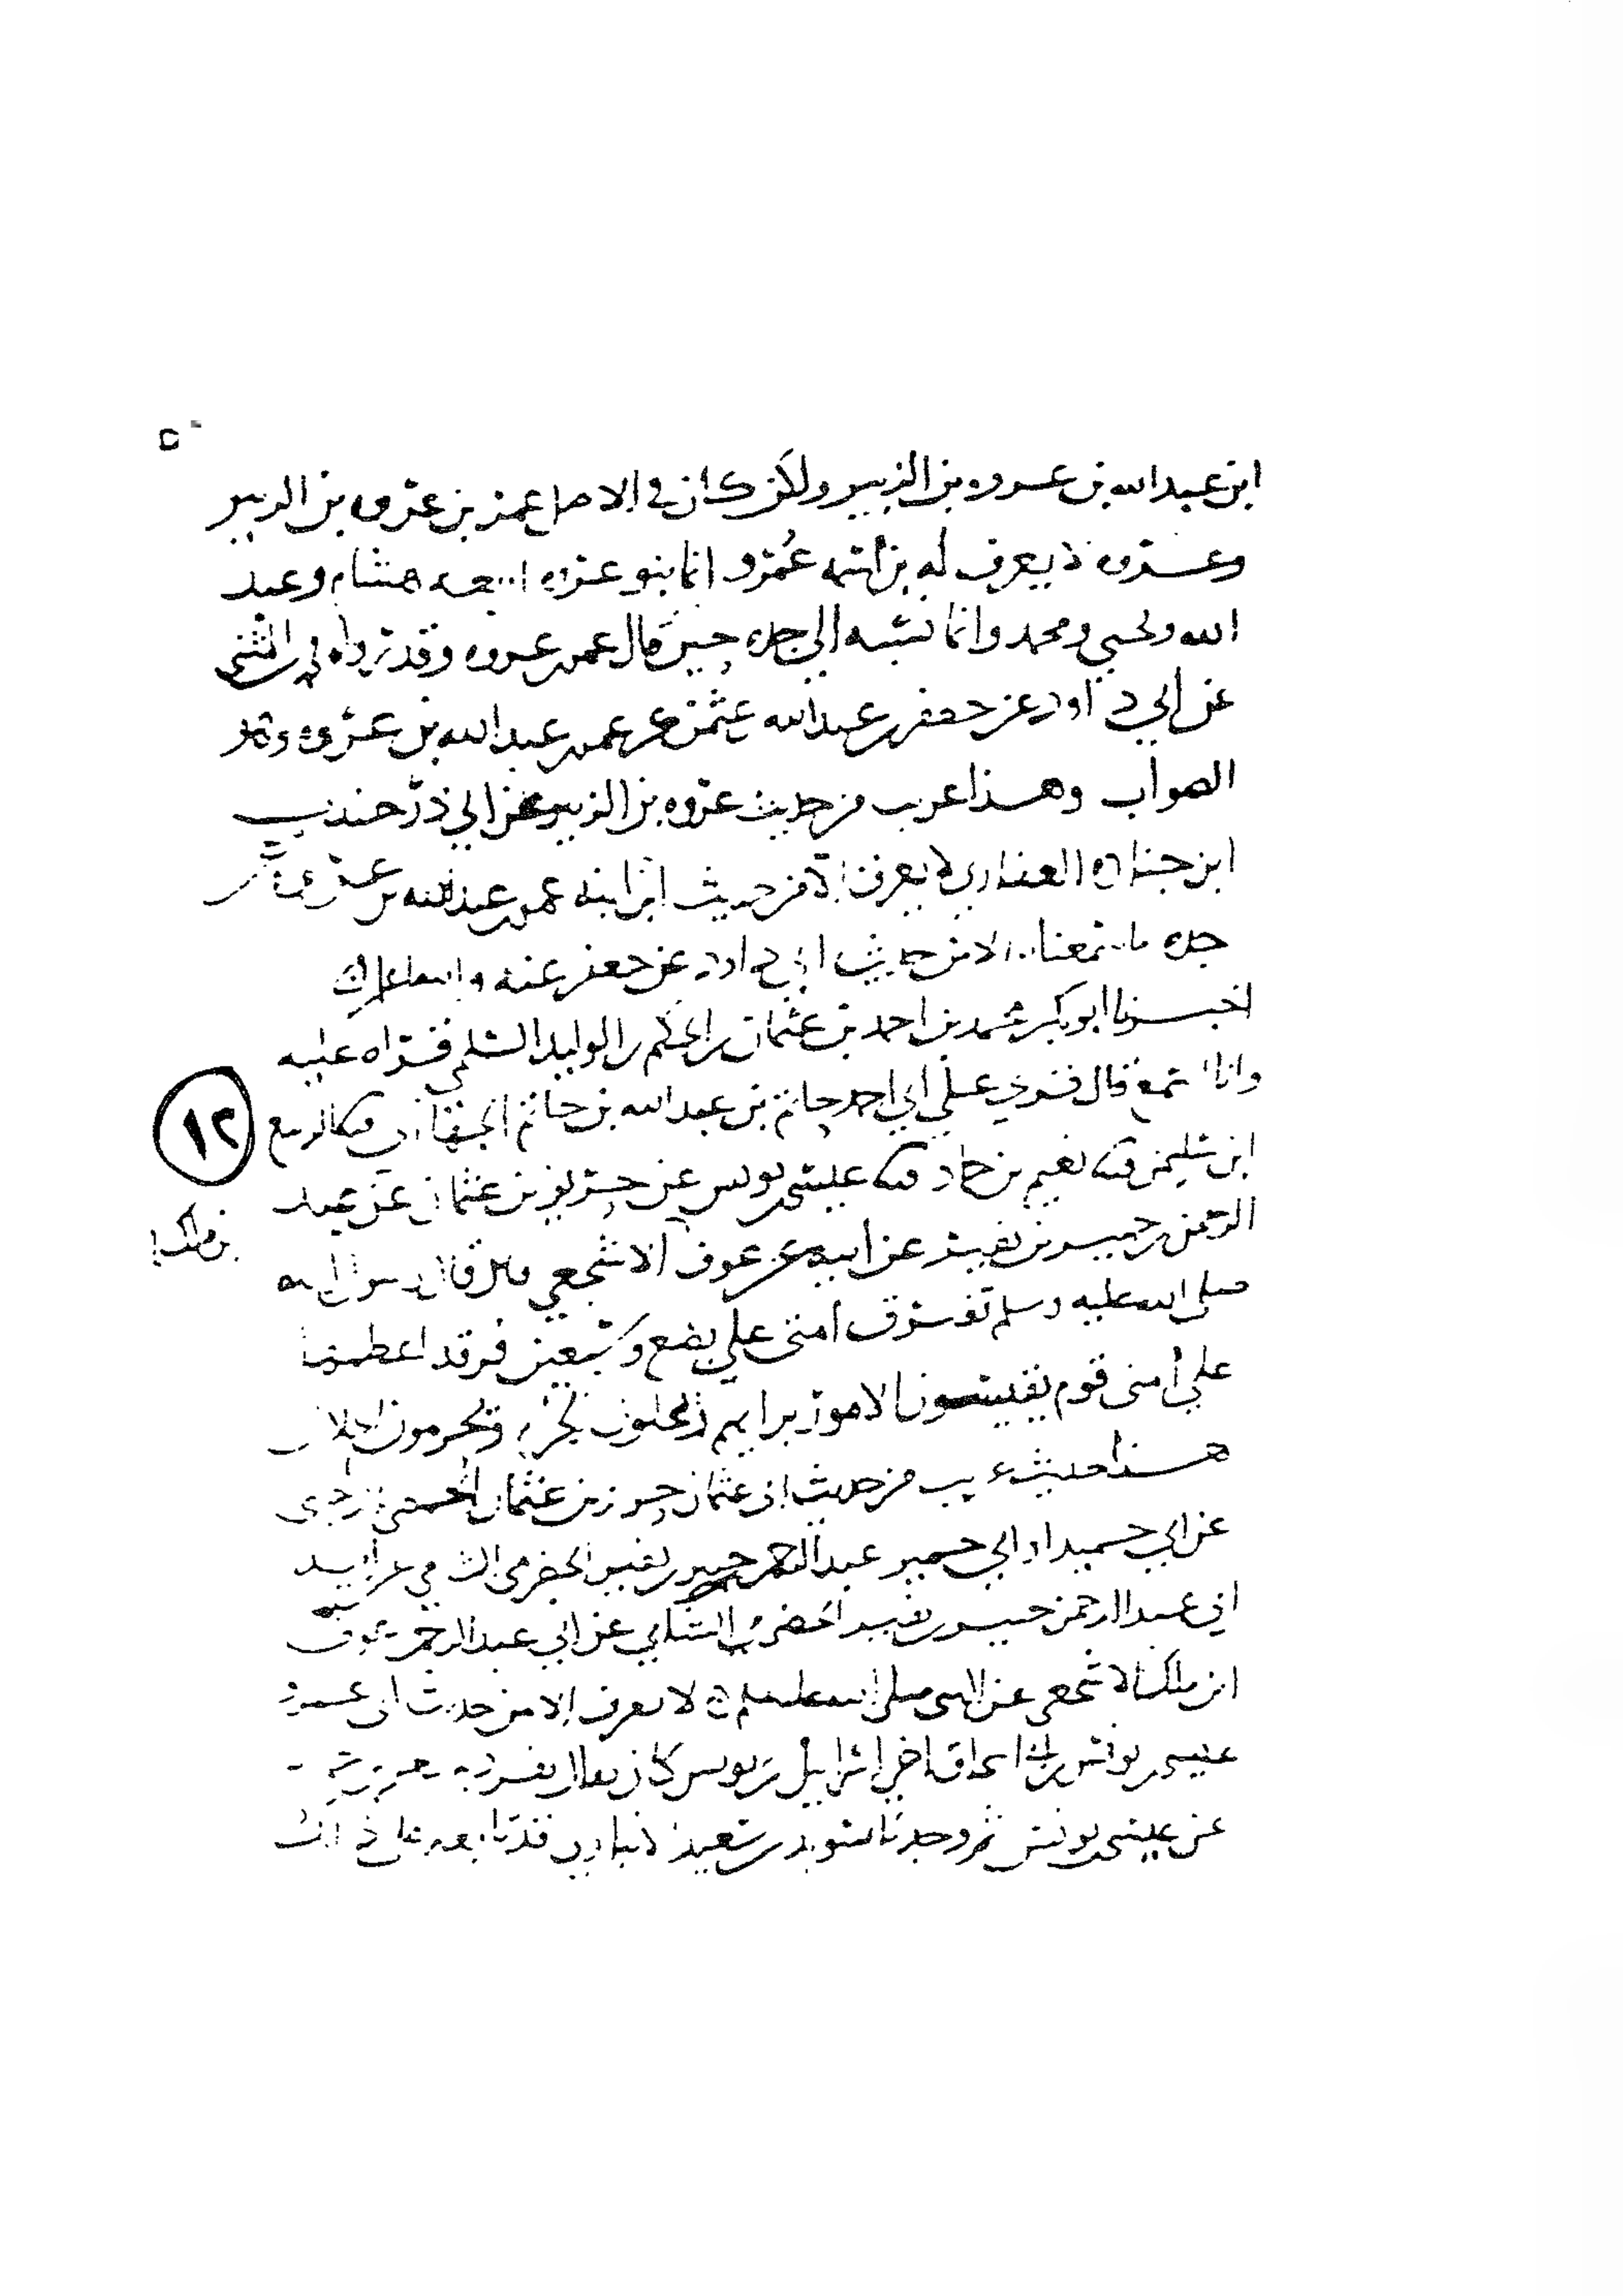 ابن عبد الله بن عروه بن الزبير ولكن كان في الاصل عمر بن عروه بن الزبير
وعروه لا يعرف له بن اسمه عمر و انما بنو عروه اربعه هشام وعبد
الله ويحيى ومحمد وانما نسبه الي جده حين قال عمر بن عروه وقد رواه ابن المثنى
عن ابي داود عن جعفر بن عبد الله بن عثمن عن عمر بن عبد الله بن عروه وهو
الصواب وهذا غريب من حديث عروه بن الزبير عن ابي ذر جندب
ابن جناده الغفاري لا يعرف الا من حديث ابن ابنه عمر بن عبد الله بن عروه عن
جده ما سمعناه الا من حديث ابي داود عن جعفر عنه والله اعلم
اخبرنا ابو بكر محمد بن احمد بن عثمان بن الحكم بن الوليد السلمي قراه عليه
وانا اسمع قال قري علي ابي احمد حاتم بن عبد الله بن حاتم الجهازي الربيع
ابن سليمن نعيم بن حماد عيسى بن يونس عن حريز بن عثمان عن عبد
الرحمن بن جبير بن نفير عن ابيه عن عوف الاشجعي قال قال رسول الله
بن مالك
صلى الله عليه وسلم تفترق امتى علي بضع وسبعين فرقه اعظمها
علي امتى قوم يقيسون الامور برايهم فيحلون الحرام ويحرمون الحلال
هذا حديث غريب من حديث ابي عثمان حريز بن عثمان الحمصي الرحبى
عن ابي حميد او ابي حمير عبد الرحمن بن جبير بن نفير الحضرمي الشامي عن ابيه
ابي عبد الرحمن جبير بن نفير الحضرمي الشامي عن ابي عبد الرحمن عوف
ابن ملك الاشجعي عن النبي صلى الله عليه وسلم لا يعرف الا من حديث ابي عمرو
عيسى بن يونس بن ابي اسحاق اخي اسرائيل بن يونس كان يقال تفرد به نعيم
عن عيسى بن يونس ثم وجدنا سويد بن سعيد الانباري قد تابعه علي ذلك
١٢